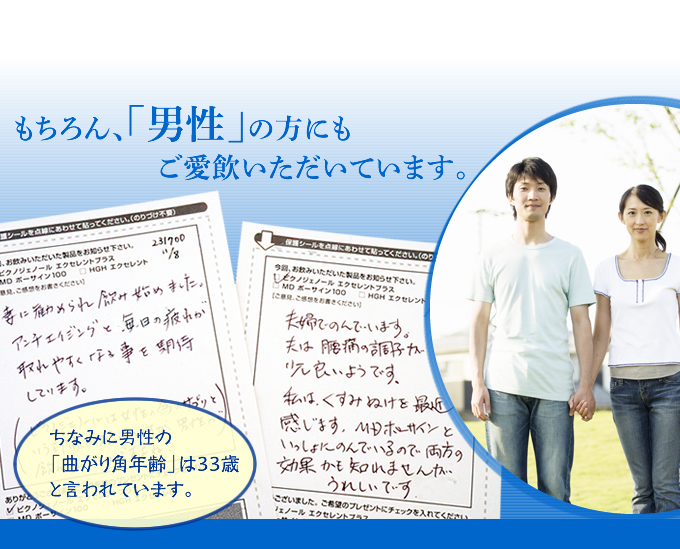 もちろん、「男性」の方にも
ご愛飲いただいています。
護シールを点線にあわせて貼ってください。(のりづけ不要)
お飲みいただいた製品をお知らせ下さい。
ピクノジェノール エクセレントプラス
MD ポーサイン100 □ HGH エクセレント
意見、ご感想をお書きください
231700
11/8
妻に勧められ飲み始めました。
アンチエイジングと毎日の疲れが
取れやすくなる事を期待
しています。
保護シールを点線にあわせて貼ってください。(のり
今回、お飲みいただいた製品をお知らせ下さい。
ピクノジェノール エクセレントプラス
□ MD ポーサイン100 □ HGH エクセレント
ご意見、ご感想をお書きください
夫婦でのんでいます。
夫は腰痛の調子が
少し良いようです。
私は、くすみぬけを最近
感じます。MDポーサインと
いっしょにのんでいるので両方の
効果かも知れませんが、
うれしいです。
ちなみに男性の
「曲がり角年齢」は33歳
と言われています。
ありが
ピクノジェノール
MD ポーサイン
ございました。ご希望のプレゼントにチェックを入れてください
ジェノール エクセレントプラス